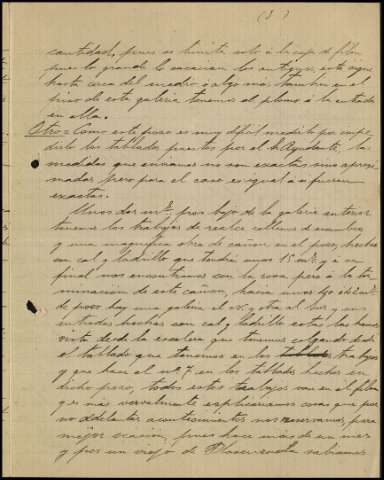 (3)
cantidad, pues se limita solo á la capa de plan
pues lo grande lo sacaron los antiguos, esto sigue
hasta cerca del medio ó algo más, tambien en el
piso de esta galeria tenemos el plomo á la entrada
en ella.
Otro = Como este pozo es muy dificil medirlo por impe-
dirlo los tablados puestos por el Ayudante, las
medidas que enviamos no son exactas sino aproxi-
madas pero para el caso es igual á si fuesen
exactas.
Unos dos mts. pues bajo de la galeria anterior
tenemos los trabajos de realce
y una magnifica obra de cañon, en el pozo, hecha
en cal y ladrillo que tendrá unos 15 mts. y á su
final nos encontramos con la roca pero á la ter-
minacion de este cañon, hacia unos
de pozo hay una galeria al N. y otra al Sur y sus
entradas hechas con cal y ladrillo estas las hemos
visto desde la escalera que tenemos colgando desde
el tablado que tenemos en los trabajos
y que hace el nº 7 en los tablados hechos en
dicho pozo, todos estos trabajos van en el plan
que más verbalmente esplicaremos cosas que por
no adelantar acontecimientos nos reservamos, para
mejor ocasion, pues hace más de un mes
y por un viejo de Plasenzuela sabiamos